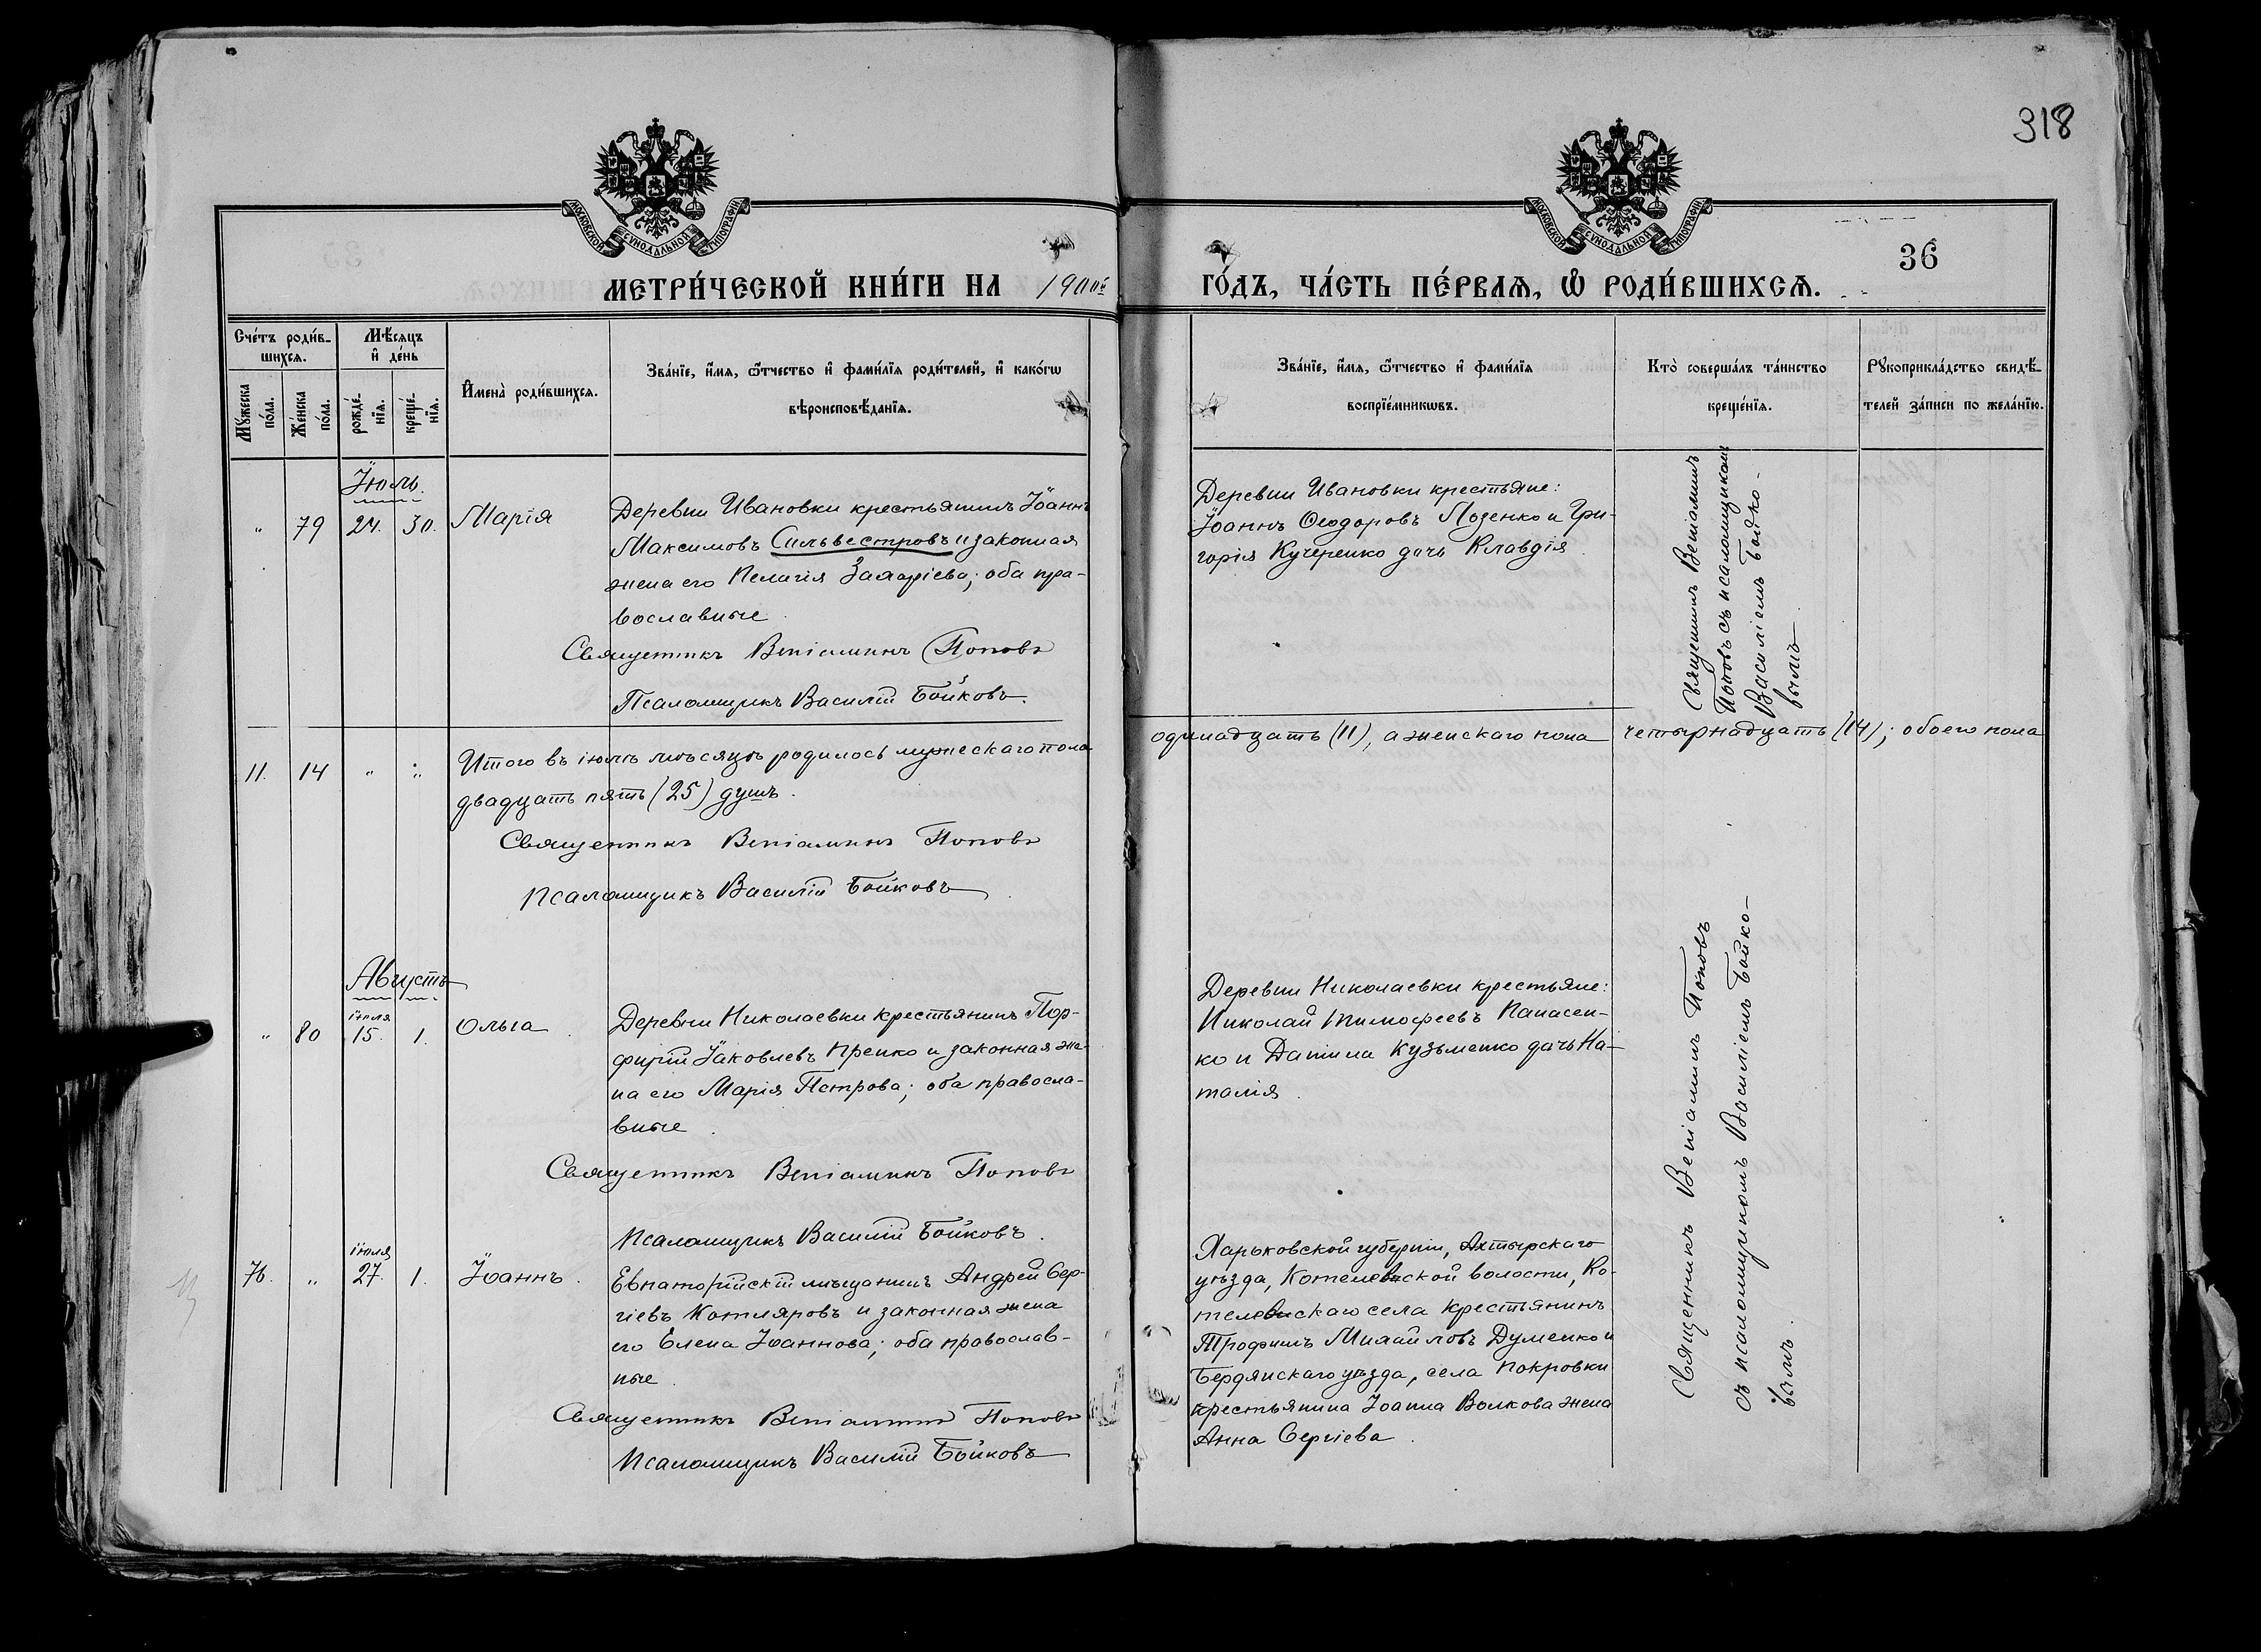 318
МОСКОВСКОЙ СѴНОДАЛЬНОЙ ТИПОГРАФІИ
МОСКОВСКОЙ СѴНОДАЛЬНОЙ ТИПОГРАФІИ
36
МЕТРИ́ЧЕСКОЙ КНИ́ГИ НА 1900й
ГО́ДЪ, ЧА́СТЬ ПЕ́РВАѦ, Ѡ҆ РОДИ́ВШИХСѦ.
Сче́тъ роди́в-
шихсѧ.
Мꙋ́жеска по́ла.
Же́нска по́ла.
Мѣ́сѧцъ
и҆ де́нь
рожде́-
нїѧ.
креще́-
нїѧ.
И҆мена̀ роди́вшихсѧ.
Зва́нїе, и҆́мѧ, ѻ҆́тчество и҆ фами́лїѧ роди́телей, и҆ како́гѡ
вѣроисповѣ́данїѧ.
Зва́нїе, и҆́мѧ, ѻ҆́тчество и҆ фами́лїѧ
воспрїе́мникѡвъ.
Кто̀ соверша́лъ та́инство
креще́нїѧ.
Рꙋкоприкла́дство свидѣ́-
телей за́писи по жела́нїю.
Іюль.
„ 79 24. 30. Марія
Деревни Ивановки крестьянинъ Іоаннъ
Максимовъ Сильвестровъ и законная
жена его Пелагія Захаріева; оба пра-
вославные.
Священникъ Веніаминъ Поповъ
Псаломщикъ Василій Бойковъ.
Деревни Ивановки крестьяне:
Іоаннъ Ѳеодоровъ Лозенко и Гри-
горія Кучеренко дочь Клавдія.
Священникъ Веніаминъ
Поповъ съ псаломщикомъ
Василіемъ Бойко-
вымъ.
11. 14 „ „ Итого въ іюлѣ мѣсяцѣ родилось мужескаго пола
одинадцать (11), а женскаго пола четырнадцать (14); обоего пола
двадцать пять (25) душъ.
Священникъ Веніаминъ Поповъ
Псаломщикъ Василій Бойковъ
Августъ
„ 80 іюля 15. 1. Ольга
Деревни Николаевки крестьянинъ Пор-
фирій Іаковлевъ Пренко и законная же-
на его Марія Петрова; оба правосла-
вные.
Священникъ Веніаминъ Поповъ
Псаломщикъ Василій Бойковъ.
Деревни Николаевки крестьяне:
Николай Тимофеевъ Панасен-
ко и Данила Кузьменко дочь На-
талія.
76. „ іюля 27. 1. Іоаннъ.
Евпаторійскій мѣщанинъ Андрей Сер-
гіевъ Котляровъ и законная жена
его Елена Іоаннова; оба православ-
ные.
Священникъ Веніаминъ Поповъ
Псаломщикъ Василій Бойковъ
Харьковской губерніи, Ахтырскаго
уѣзда, Котелевской волости, Ко-
телевскаго села крестьянинъ
Трофимъ Михайловъ Думенко и
Бердянскаго уѣзда, села Покровки
крестьянина Іоанна Волкова жена
Анна Сергіева.
Священникъ Веніаминъ Поповъ
съ псаломщикомъ Василіемъ Бойко-
вымъ.